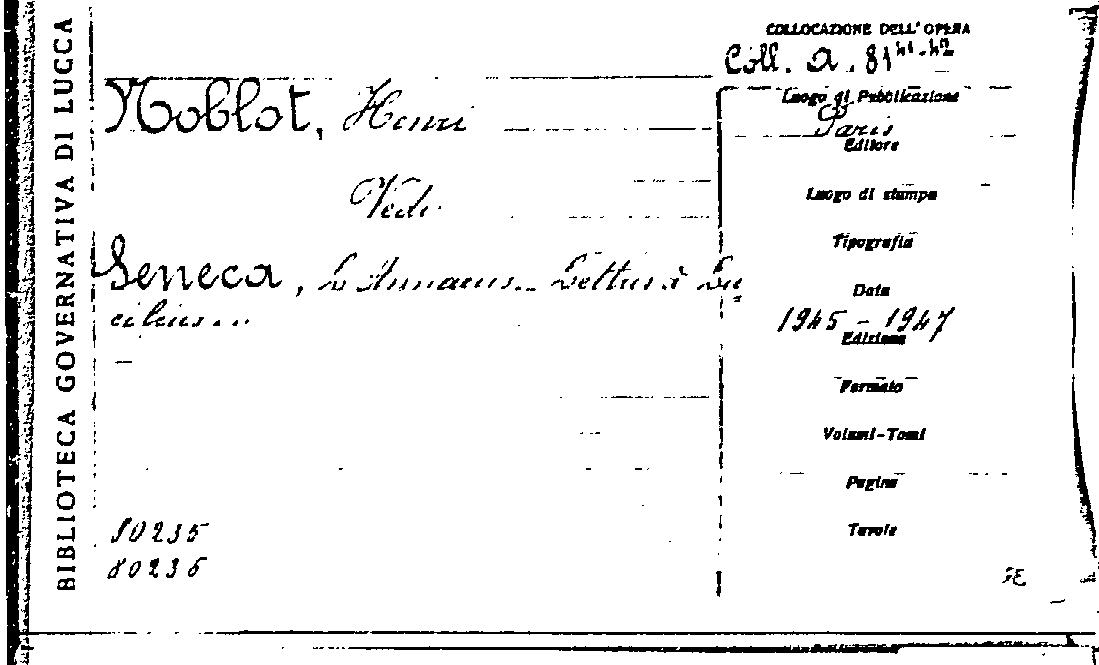 BIBLIOTECA GOVERNATIVA DI LUCCA
COLLOCAZIONE DELL'OPERA
Coll. A. 81 41-42
Noblot, Henri
Luogo di Pubblicazione
Paris
Editore
Vedi
Luogo di stampa
Tipografia
Seneca, L. Annaeus.. Lettres à Lu=
cilius...
Data
1945 - 1947
Edizione
Formato
Volumi-Tomi
Pagine
Tavole
80235
80236